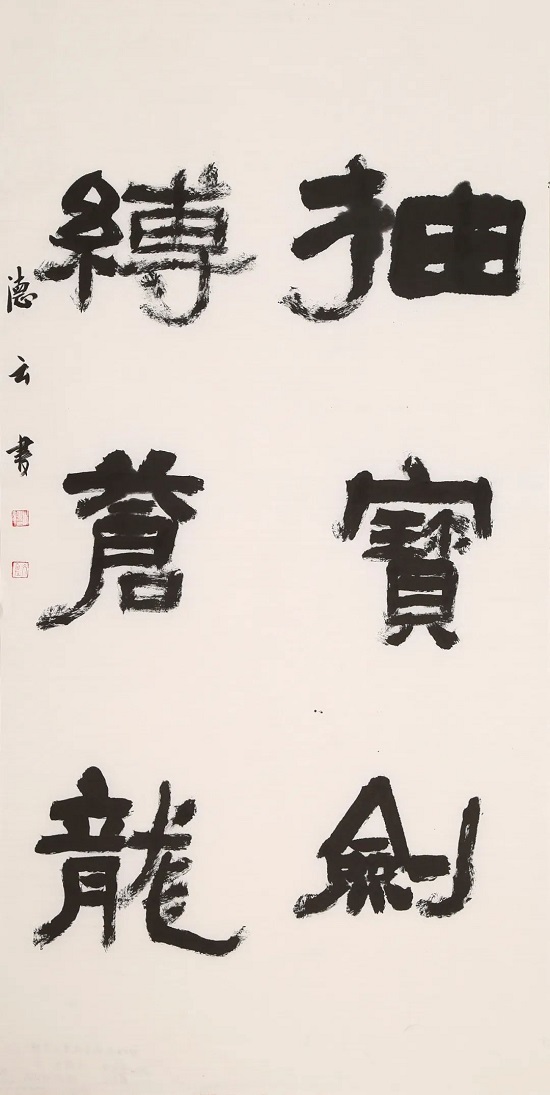 抽寶劍
縛蒼龍
德云書